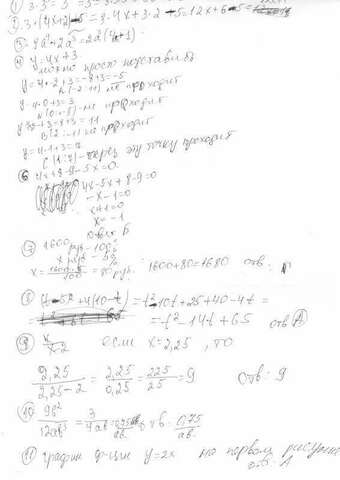 ① 3·3² = 3
2. 3·(4x+2)-5 = 3·4x+3·2-5 = 12x+6-5 =
4 y=4x+3.
можно просто подставить
y=4·-2+3=-8+3=-5
A(-2;-11) не проходит
y=4·0+3=3
не проходит
y=4·2+3=8+3=11
B(2;-11) не проходит
y=4·1+3=7
C(1;7) - через эту точку проходит
⑥ 4x+8-9-5x=0.
4x-5x+8-9=0
-x-1=0
x+1=0
x=-1
Ответ Б
⑦ 1600 руб - 100%
x руб - 5%
x = = 80 руб. 1600+80=1680 отв:
⑧ (t-5)²+4(10-t)=t²-10t+25+40-4t=
=t²-14t+65 отв Ⓐ
⑨ x/x-2 если x=2,25, то
2,25/2,25-2 = 2,25/0,25 = 225/25 = 9 Отв: 9
⑩ 9b²/12ab³ = 3/4ab = 0,75/ab отв: 0,75/ab.
⑪ график ф-ции y=2x на первом рисунке
отв: А